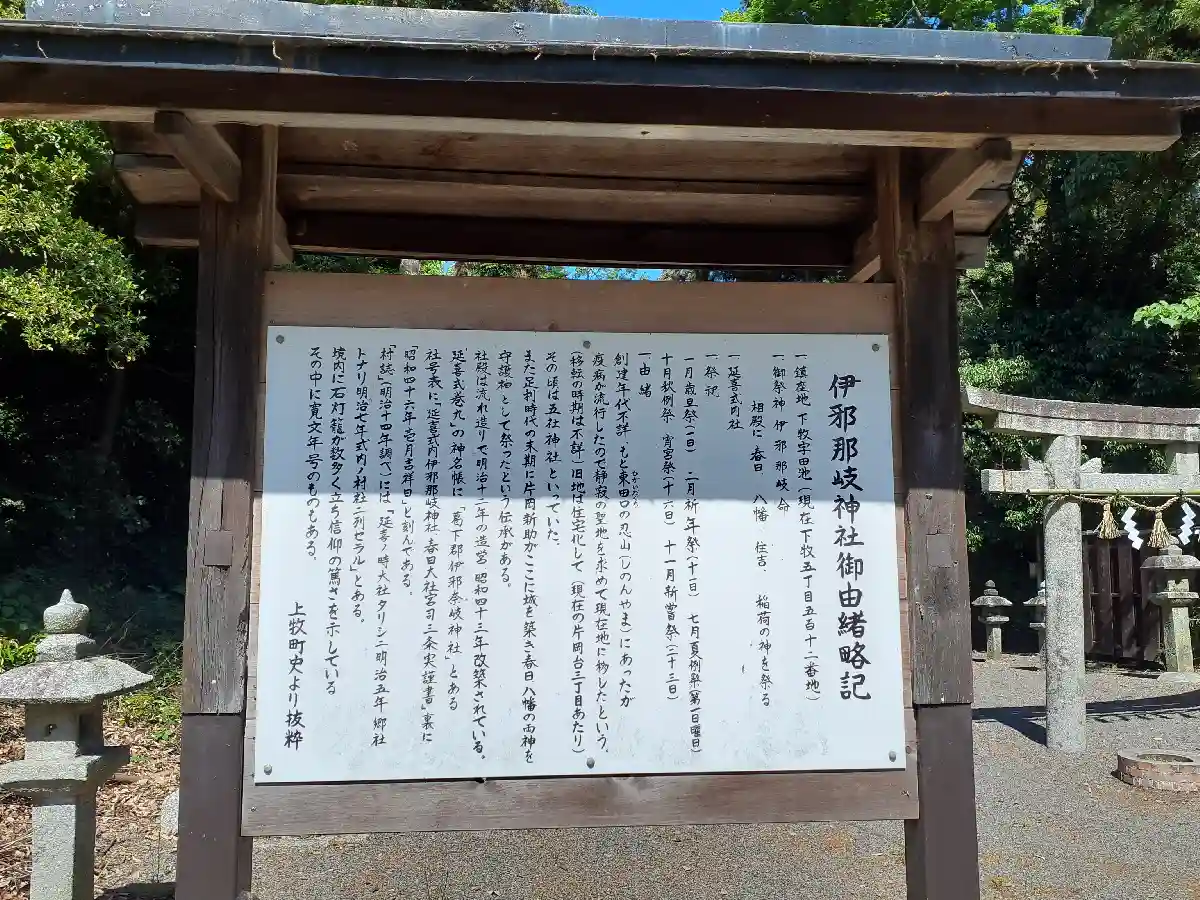 伊邪那岐神社御由緒略記
一鎮在地 下牧字田池(現在下牧五丁目五百十二番地)
一御祭神 伊邪那岐命
相殿に春日 八幡 住吉 稲荷の神を祭る
一延喜式内社
一祭祝
一月歳旦祭(一日) 二月祈年祭(十一日) 七月夏例祭(第一日曜日)
十月秋例祭 宵宮祭(十六日) 十一月新嘗祭(二十三日)
一由緒
創建年代不詳、もと東田口の忍山(しのんやま)にあったが
疫病が流行したので静寂の聖地を求めて現在地に移したという。
(移転の時期は不詳)旧地は住宅化して(現在の片岡台三丁目あたり)
その頃は五社神社といっていた。
また足利時代の末期に片岡新助がここに城を築き春日八幡の両神を
守護神として祭ったという伝承がある。
社殿は流れ造りで明治十二年の造営 昭和四十三年改築されている。
延喜式巻九の神名帳に「葛下郡伊邪奈岐神社」とある
社号表に「延喜式内伊邪那岐神社 春日大社宮司三条実謹書」裏に
「昭和四十六年壱月吉祥日」と刻んである。
「村誌」(明治十四年調べ)には「延喜ノ時大社タリシニ明治五年郷社
トナリ明治七年式内ノ村社ニ列セラル」とある。
境内に石灯籠が数多く立ち信仰の篤さを示している
その中に寛文年号のものもある。
上牧町史より抜粋